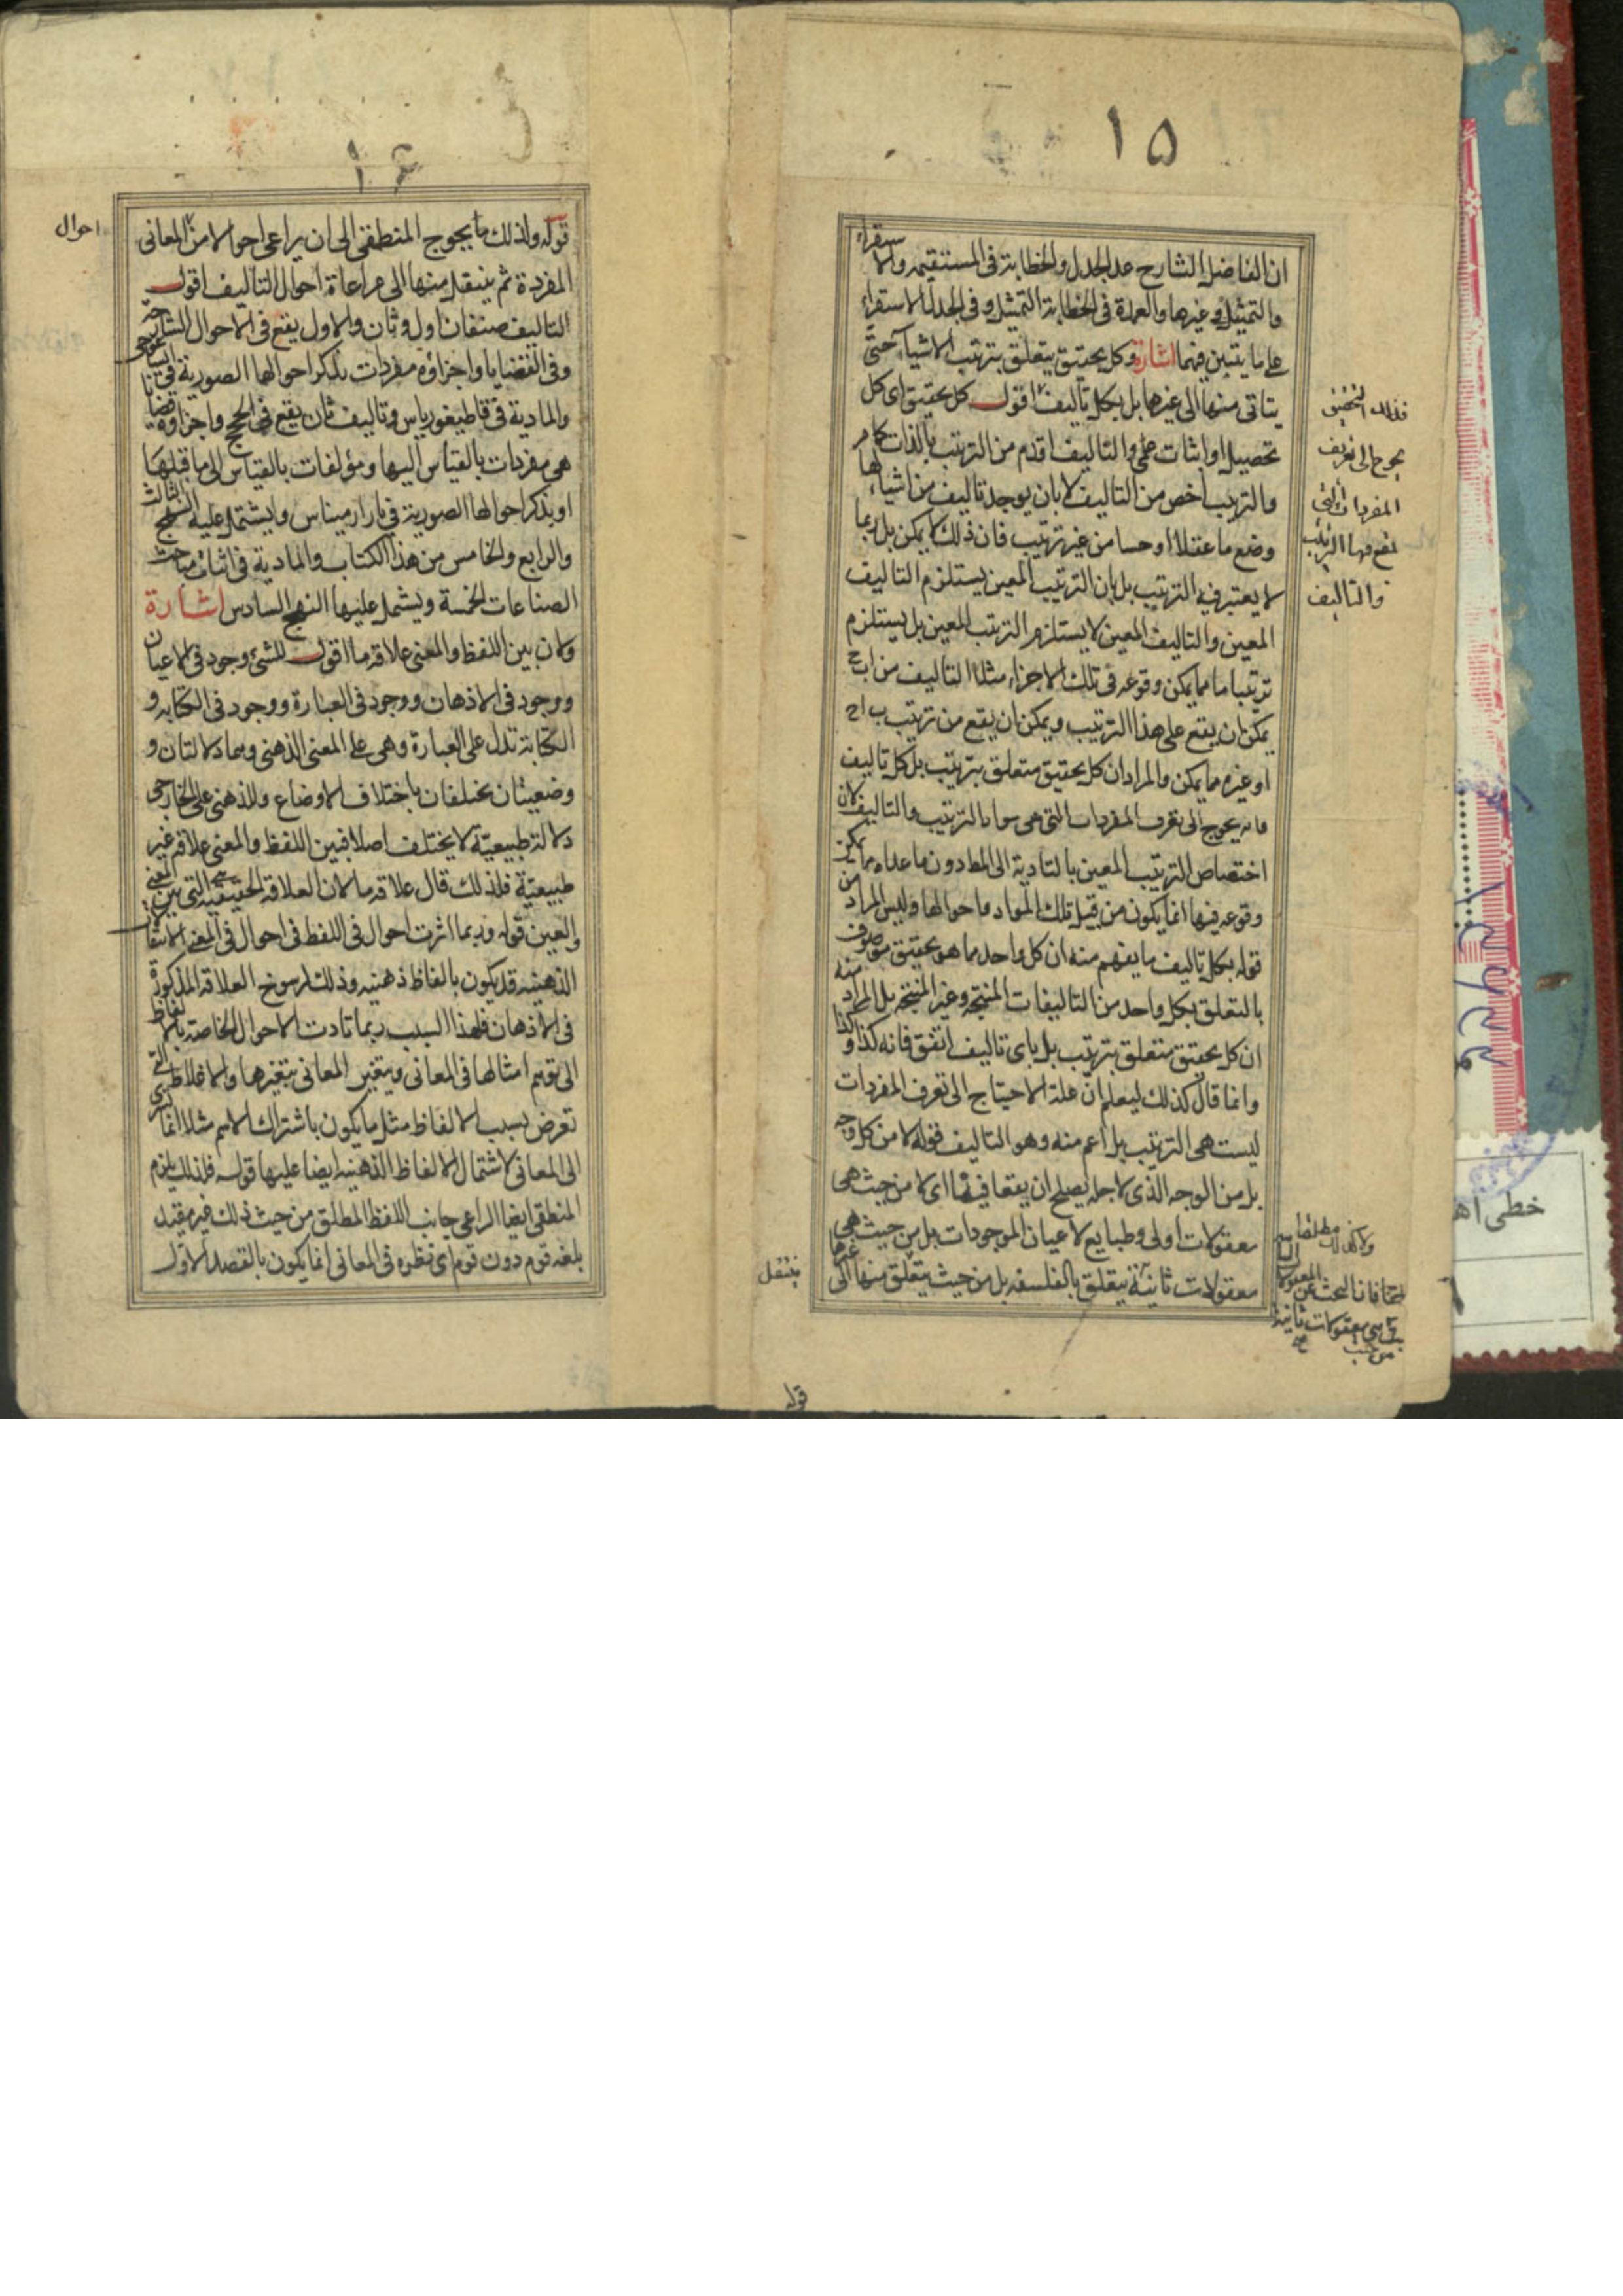 ١٥
ان الفاضل الشارح عد الجدل والخطابة فى المستقيمة والاستقراء
والتمثيل فى غيرها والعمدة فى الخطابة التمثيل وفى الجدل الاستقراء
على ما يتبين فيهما اشارة وكل تحقيق يتعلق بترتيب الاشياء حتى
يتاتى منها الى غيرها بل بكل تاليف اقول كل تحقيق اى كل
تحصيل او اثبات علمى والتاليف اقدم من الترتيب بالذات كما مر
والترتيب اخص من التاليف لا بان يوجد تاليف من اشياء لها
وضع ما عقلا او حسا من غير ترتيب فان ذلك لا يمكن بل ربما
لا يعتبر فيه الترتيب بل بان الترتيب المعين يستلزم التاليف
المعين والتاليف المعين لا يستلزم الترتيب المعين بل يستلزم
ترتيبا ما مما يمكن وقوعه فى تلك الاجزاء مثلا التاليف من ا ب ج
يمكن ان يقع على هذا الترتيب ويمكن ان يقع من ترتيب ب ا ج
او غيره مما يمكن والمراد ان كل تحقيق متعلق بترتيب بل كل تاليف
فانه يحوج الى تعرف المفردات التى هى مواد الترتيب والتاليف لان
اختصاص الترتيب المعين بالتادية الى المط دون ما عداه مما يمكن
وقوعه فيها انما يكون من قبيل تلك المواد واحوالها وليس المراد من
قوله بكل تاليف ما يفهم منه ان كل واحد مما هو تحقيق موصوف
بالتعلق بكل واحد من التاليفات المنتجة وغير المنتجة بل المراد منه
ان كل تحقيق متعلق بترتيب بل باى تاليف اتفق فانه كذا وكذا
وانما قال كذلك ليعلم ان علة الاحتياج الى تعرف المفردات
ليست هى الترتيب بل اعم منه وهو التاليف قوله لا من كل وجه
بل من الوجه الذى لاجله يصلح ان يقعا فيها اى لا من حيث هى
معقولات اولى وطبايع لاعيان الموجودات بل من حيث هى
معقولات ثانية يتعلق بالفلسفه بل من حيث يتعلق منها الى غيرها
فذلك التحقيق
يحوج الى تعريف
المفردات التى
تقع فيها الترتيب
والتاليف
ينتقل
قوله
١٦
قوله ولذلك ما يحوج المنطقى الى ان يراعى احوالا من المعانى
احوال
المفردة ثم ينتقل منها الى مراعاة احوال التاليف اقول
التاليف صنفان اول وثان والاول يقع فى الاحوال الشارحة
وفى القضايا واجزاؤه مفردات يذكر احوالها الصورية فى ايساغوجى
والمادية فى قاطيغورياس وتاليف ثان يقع فى الحجج واجزاؤه قضايا
هى مفردات بالقياس اليها ومؤلفات بالقياس الى ما قبلها
او يذكر احوالها الصورية فى بارارميناس ويشتمل عليه النهج الثالث
والرابع والخامس من هذا الكتاب والمادية فى اثناء مباحث
الصناعات الخمسة ويشتمل عليها النهج السادس اشارة
ولان بين اللفظ والمعنى علاقة ما اقول للشىء وجود فى الاعيان
ووجود فى الاذهان ووجود فى العبارة ووجود فى الكتابه و
الكتابة تدل على العبارة وهى على المعنى الذهنى وهما دلالتان و
وضعيتان تختلفان باختلاف الاوضاع وللذهنى على الخارجى
دلالة طبيعيّة لا يختلف اصلا فبين اللفظ والمعنى علاقة غير
طبيعيّة فلذلك قال علاقه ما لان العلاقة الحقيقيه هى التى بين المعنى
والعين قوله وربما اثرت احوال فى اللفظ فى احوال فى المعنى الانتقالات
الذهنيه قد يكون بالفاظ ذهنيه وذلك لرسوخ العلاقه المذكورة
فى الاذهان فلهذا السبب ربما تادت الاحوال الخاصة بالالفاظ
الى توهم امثالها فى المعانى ويتغير المعانى بتغيرها والاغلاط التى
تعرض بسبب الالفاظ مثل ما يكون باشتراك الاسم مثلا انما تسرى
الى المعانى لاشتمال الالفاظ الذهنيه ايضا عليها قوله فلذلك يلزم
المنطقى ايضا ان يراعى جانب اللفظ المطلق من حيث ذلك غير مقيد
بلغه قوم دون قوم اى نظره فى المعانى انما يكون بالقصد الاول
خطى اهـ